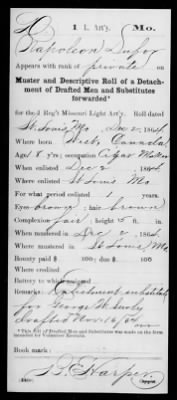 1 L. Art'y. Mo.
Napoleon
Appears with rank of private on
Muster and Descriptive Roll of a Detach-
ment of Drafted Men and Substitutes
forwarded*
for the 1 Reg't Missouri Light Art'y. Roll dated
St. Louis Mo, Dec 2, 1864.
Where born Canada
Age 18 y'rs; occupation Cigar Maker
When enlisted Dec 2, 1864.
Where enlisted St Louis Mo
For what period enlisted years.
Eyes ; hair brown
Complexion fair; height 5 ft. in.
When mustered in Dec 2, 1864.
Where mustered in St Louis, Mo
Bounty paid $ 100; due $ 100
Where credited
Battery to which assigned
Remarks: substitute
for George W.
drafted Nov. 16/64
* This Roll of Drafted Men and Substitutes was made on the form
intended for Volunteer Recruits.
Book mark:
Harper
Copyist.